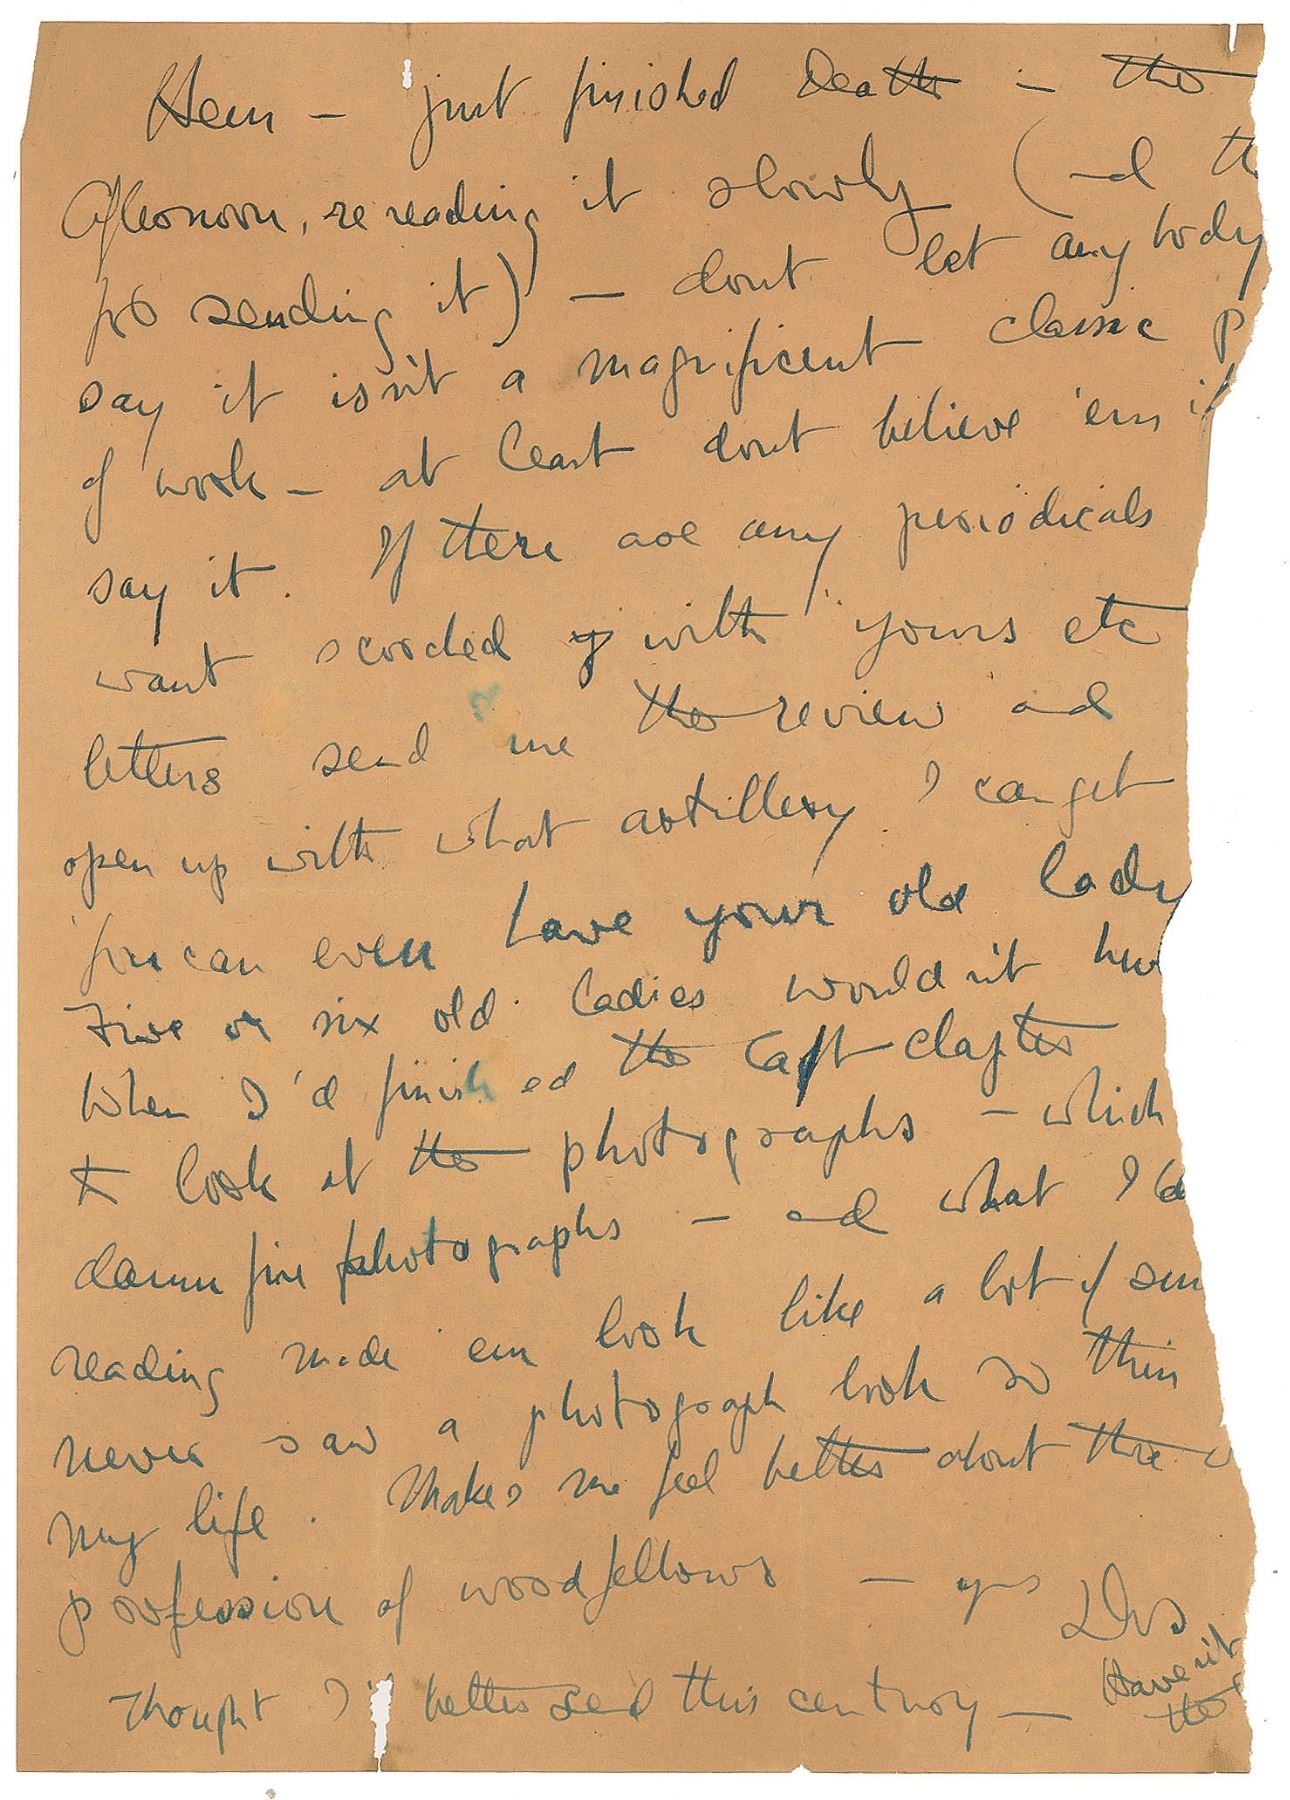 Hem – just finished Death in the
Afternoon, rereading it slowly (and th
for sending it) – dont let anybody
say it isn't a magnificent classic p
of work – at least dont believe 'em if
say it. If there are any periodicals
want scorched with yours etc
letters send me the review and
open up with what artillery I can get
You can even have your old lady
Five or six old ladies wouldn't hu
When I'd finished the last chapter
to look at the photographs – which
damn fine photographs – and what I'd
reading made em look like a lot of
never saw a photograph look so thin
my life. Makes me feel better about the
profession of woodfellows – yrs
Dos
Thought I'd better send this century –
Haven't
the